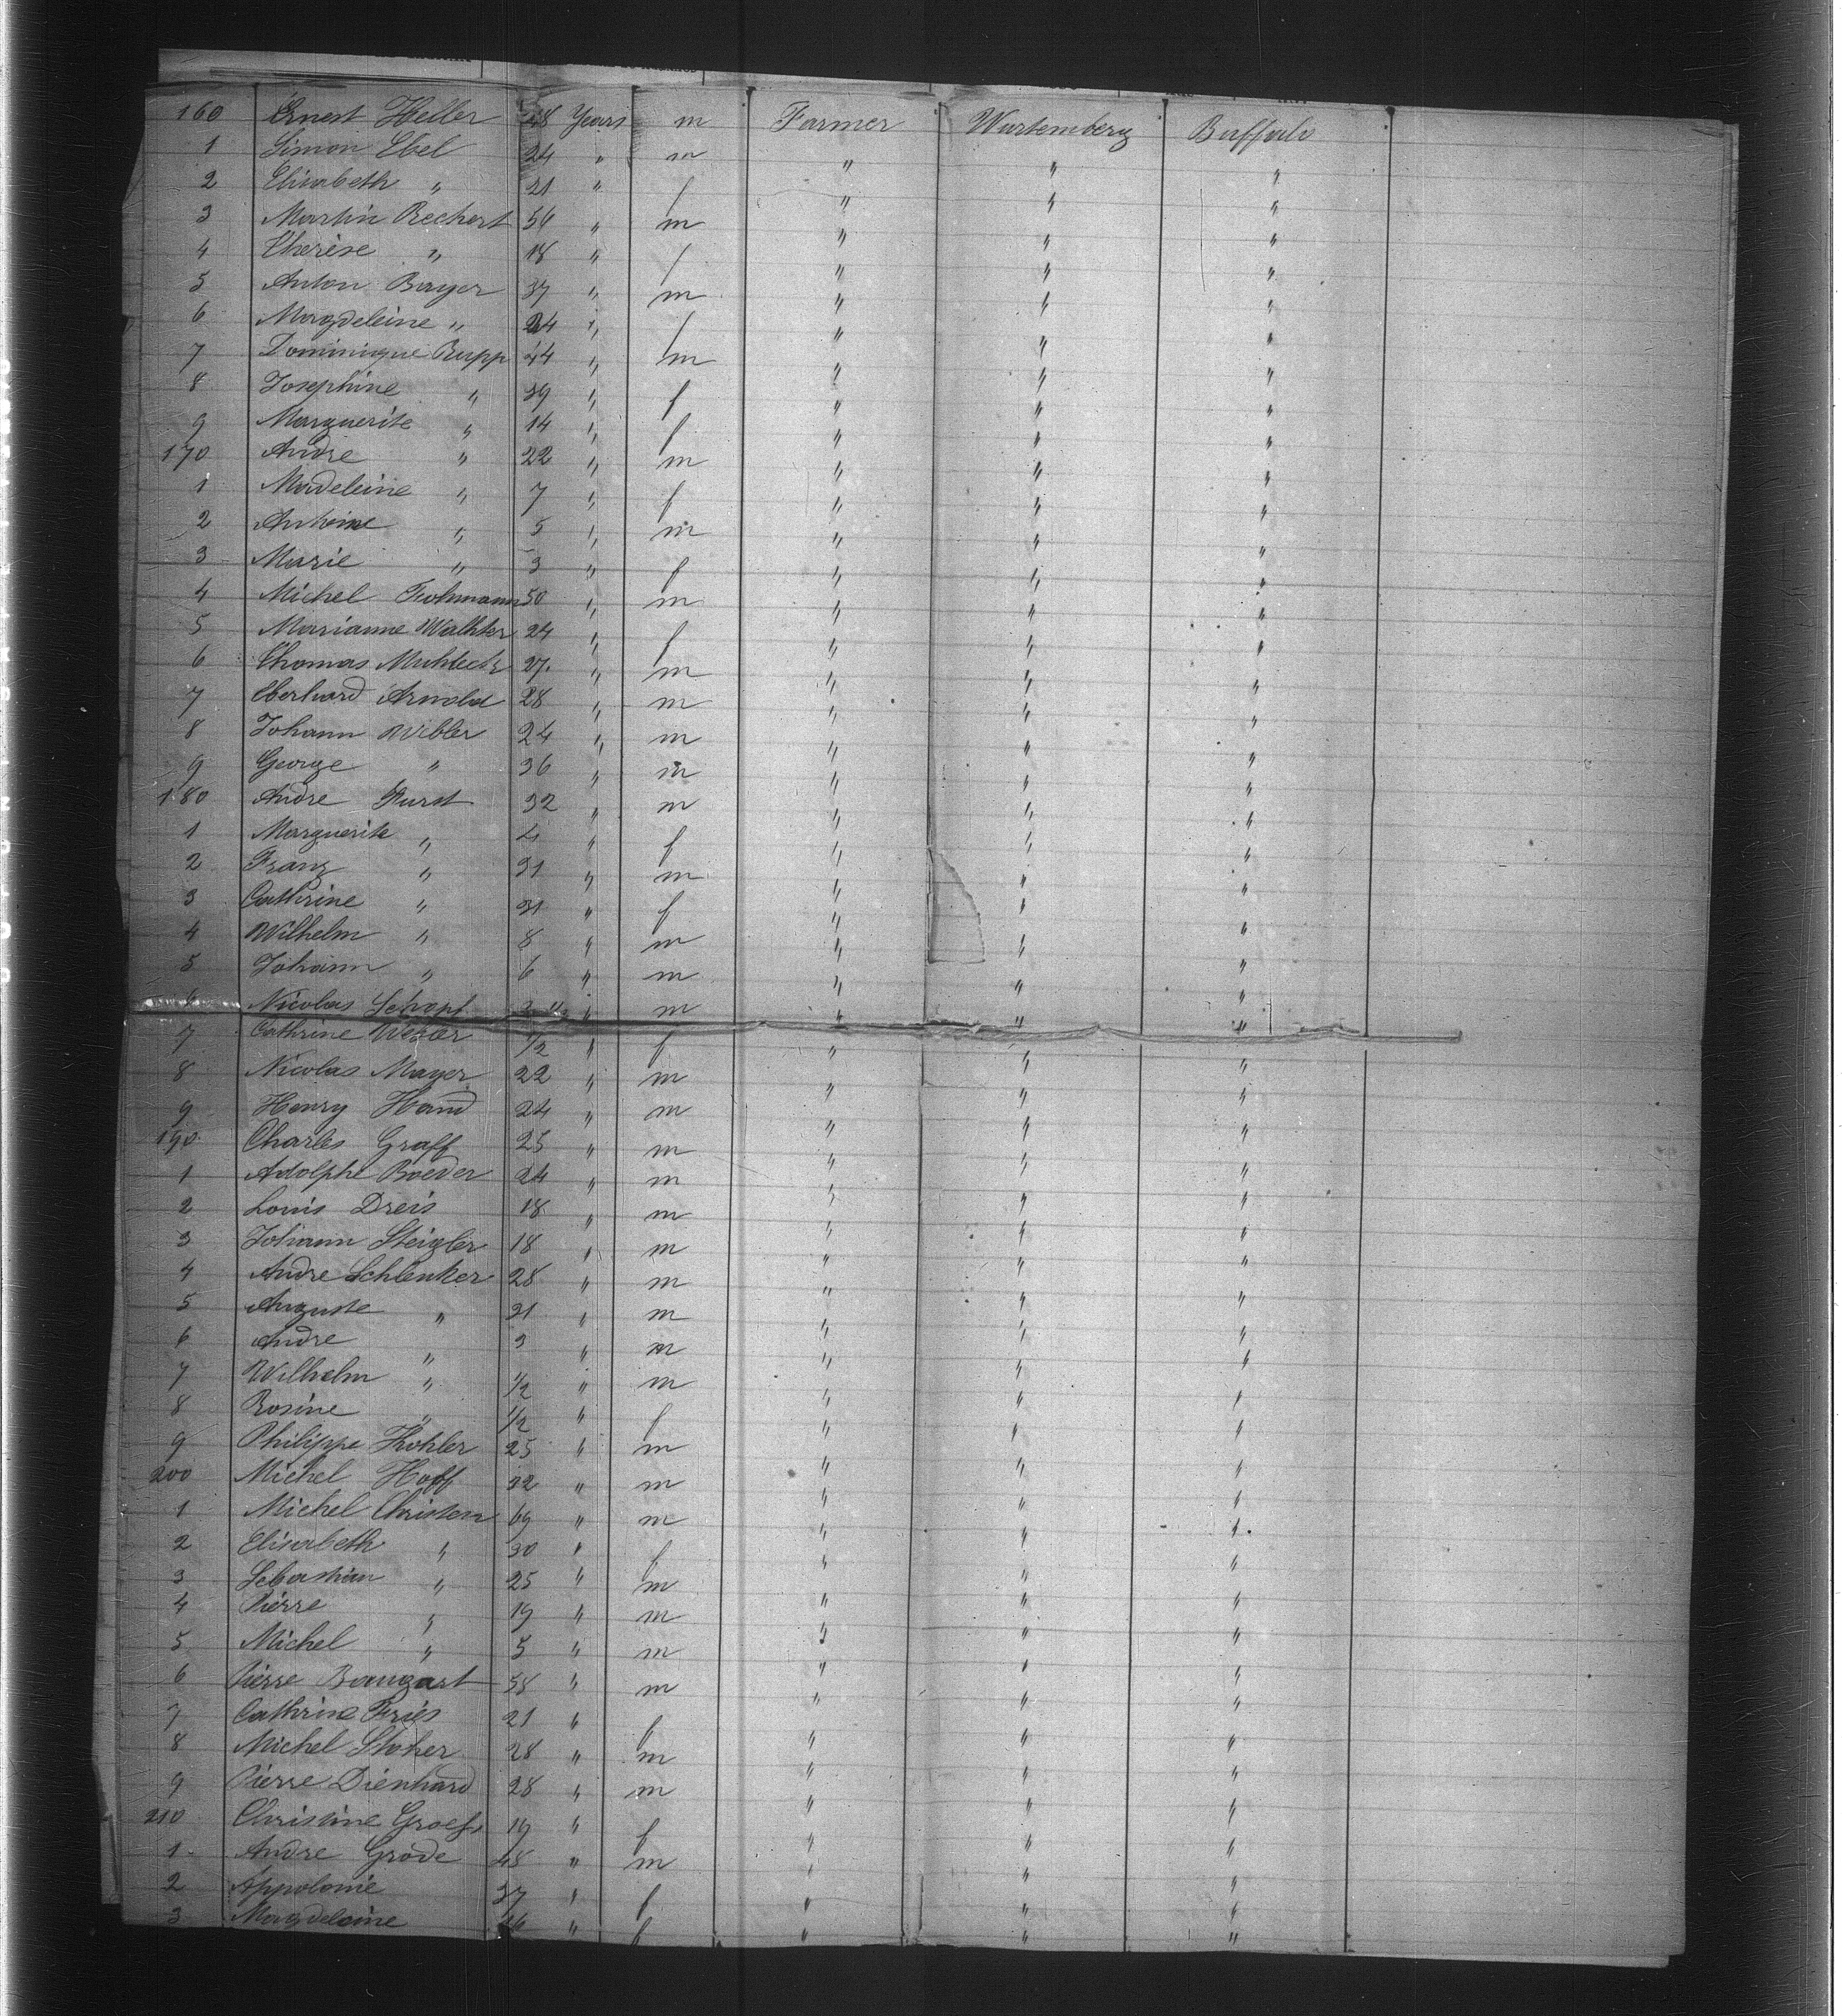 160 Ernest Heller 48 Years m Farmer Wurtemberg Buffalo
1 Simon Ebel 24 " m " " "
2 Elisabeth " 21 " f " " "
3 Martin Rechert 56 " m " " "
4 Therèse " 18 " f " " "
5 Anton Bayer 37 " m " " "
6 Magdeleine " 24 " f " " "
7 Dominique Rupp 44 " m " " "
8 Josephine " 39 " f " " "
9 Marguerite " 14 " f " " "
170 Andre " 22 " m " " "
1 Madeleine " 7 " f " " "
2 Antoine " 5 " m " " "
3 Marie " 3 " f " " "
4 Michel Frohmann 50 " m " " "
5 Marianne Walhter 24 " f " " "
6 Thomas 27 " m " " "
7 Eberhard Arnold 28 " m " " "
8 Johann Wibler 24 " m " " "
9 George " 36 " m " " "
180 Andre Furst 32 " m " " "
1 Marguerite " 4 " f " " "
2 Franz " 31 " m " " "
3 Cathrine " 31 " f " " "
4 Wilhelm " 8 " m " " "
5 Johann " 6 " m " " "
Nicolas Schopf " m " " "
7 Cathrine 1/2 " f " " "
8 Nicolas Mayer 22 " m " " "
9 Henry Hand 24 " m " " "
190 Charles Graff 25 " m " " "
1 Adolphe Roeder 24 " m " " "
2 Louis Dreis 18 " m " " "
3 Johann Steigler 18 " m " " "
4 Andre Schlenker 28 " m " " "
5 Auguste " 21 " m " " "
6 Andre " 3 " m " " "
7 Wilhelm " 1/2 " m " " "
8 Rosine " 1/2 " f " " "
9 Philippe Kohler 25 " m " " "
200 Michel Hoff 32 " m " " "
1 Michel Christen 69 " m " " "
2 Elisabeth " 30 " f " " "
3 Sebastian " 25 " m " " "
4 Pierre " 19 " m " " "
5 Michel " 5 " m " " "
6 Pierre Baugart 58 " m " " "
7 Cathrine Fries 21 " f " " "
8 Michel Stoher 28 " m " " "
9 Pierre Dienhard 28 " m " " "
210 Christine 19 " f " " "
1 Andre Grode 48 " m " " "
2 Appolonie 37 " f " " "
3 Magdeleine 46 " f " " "